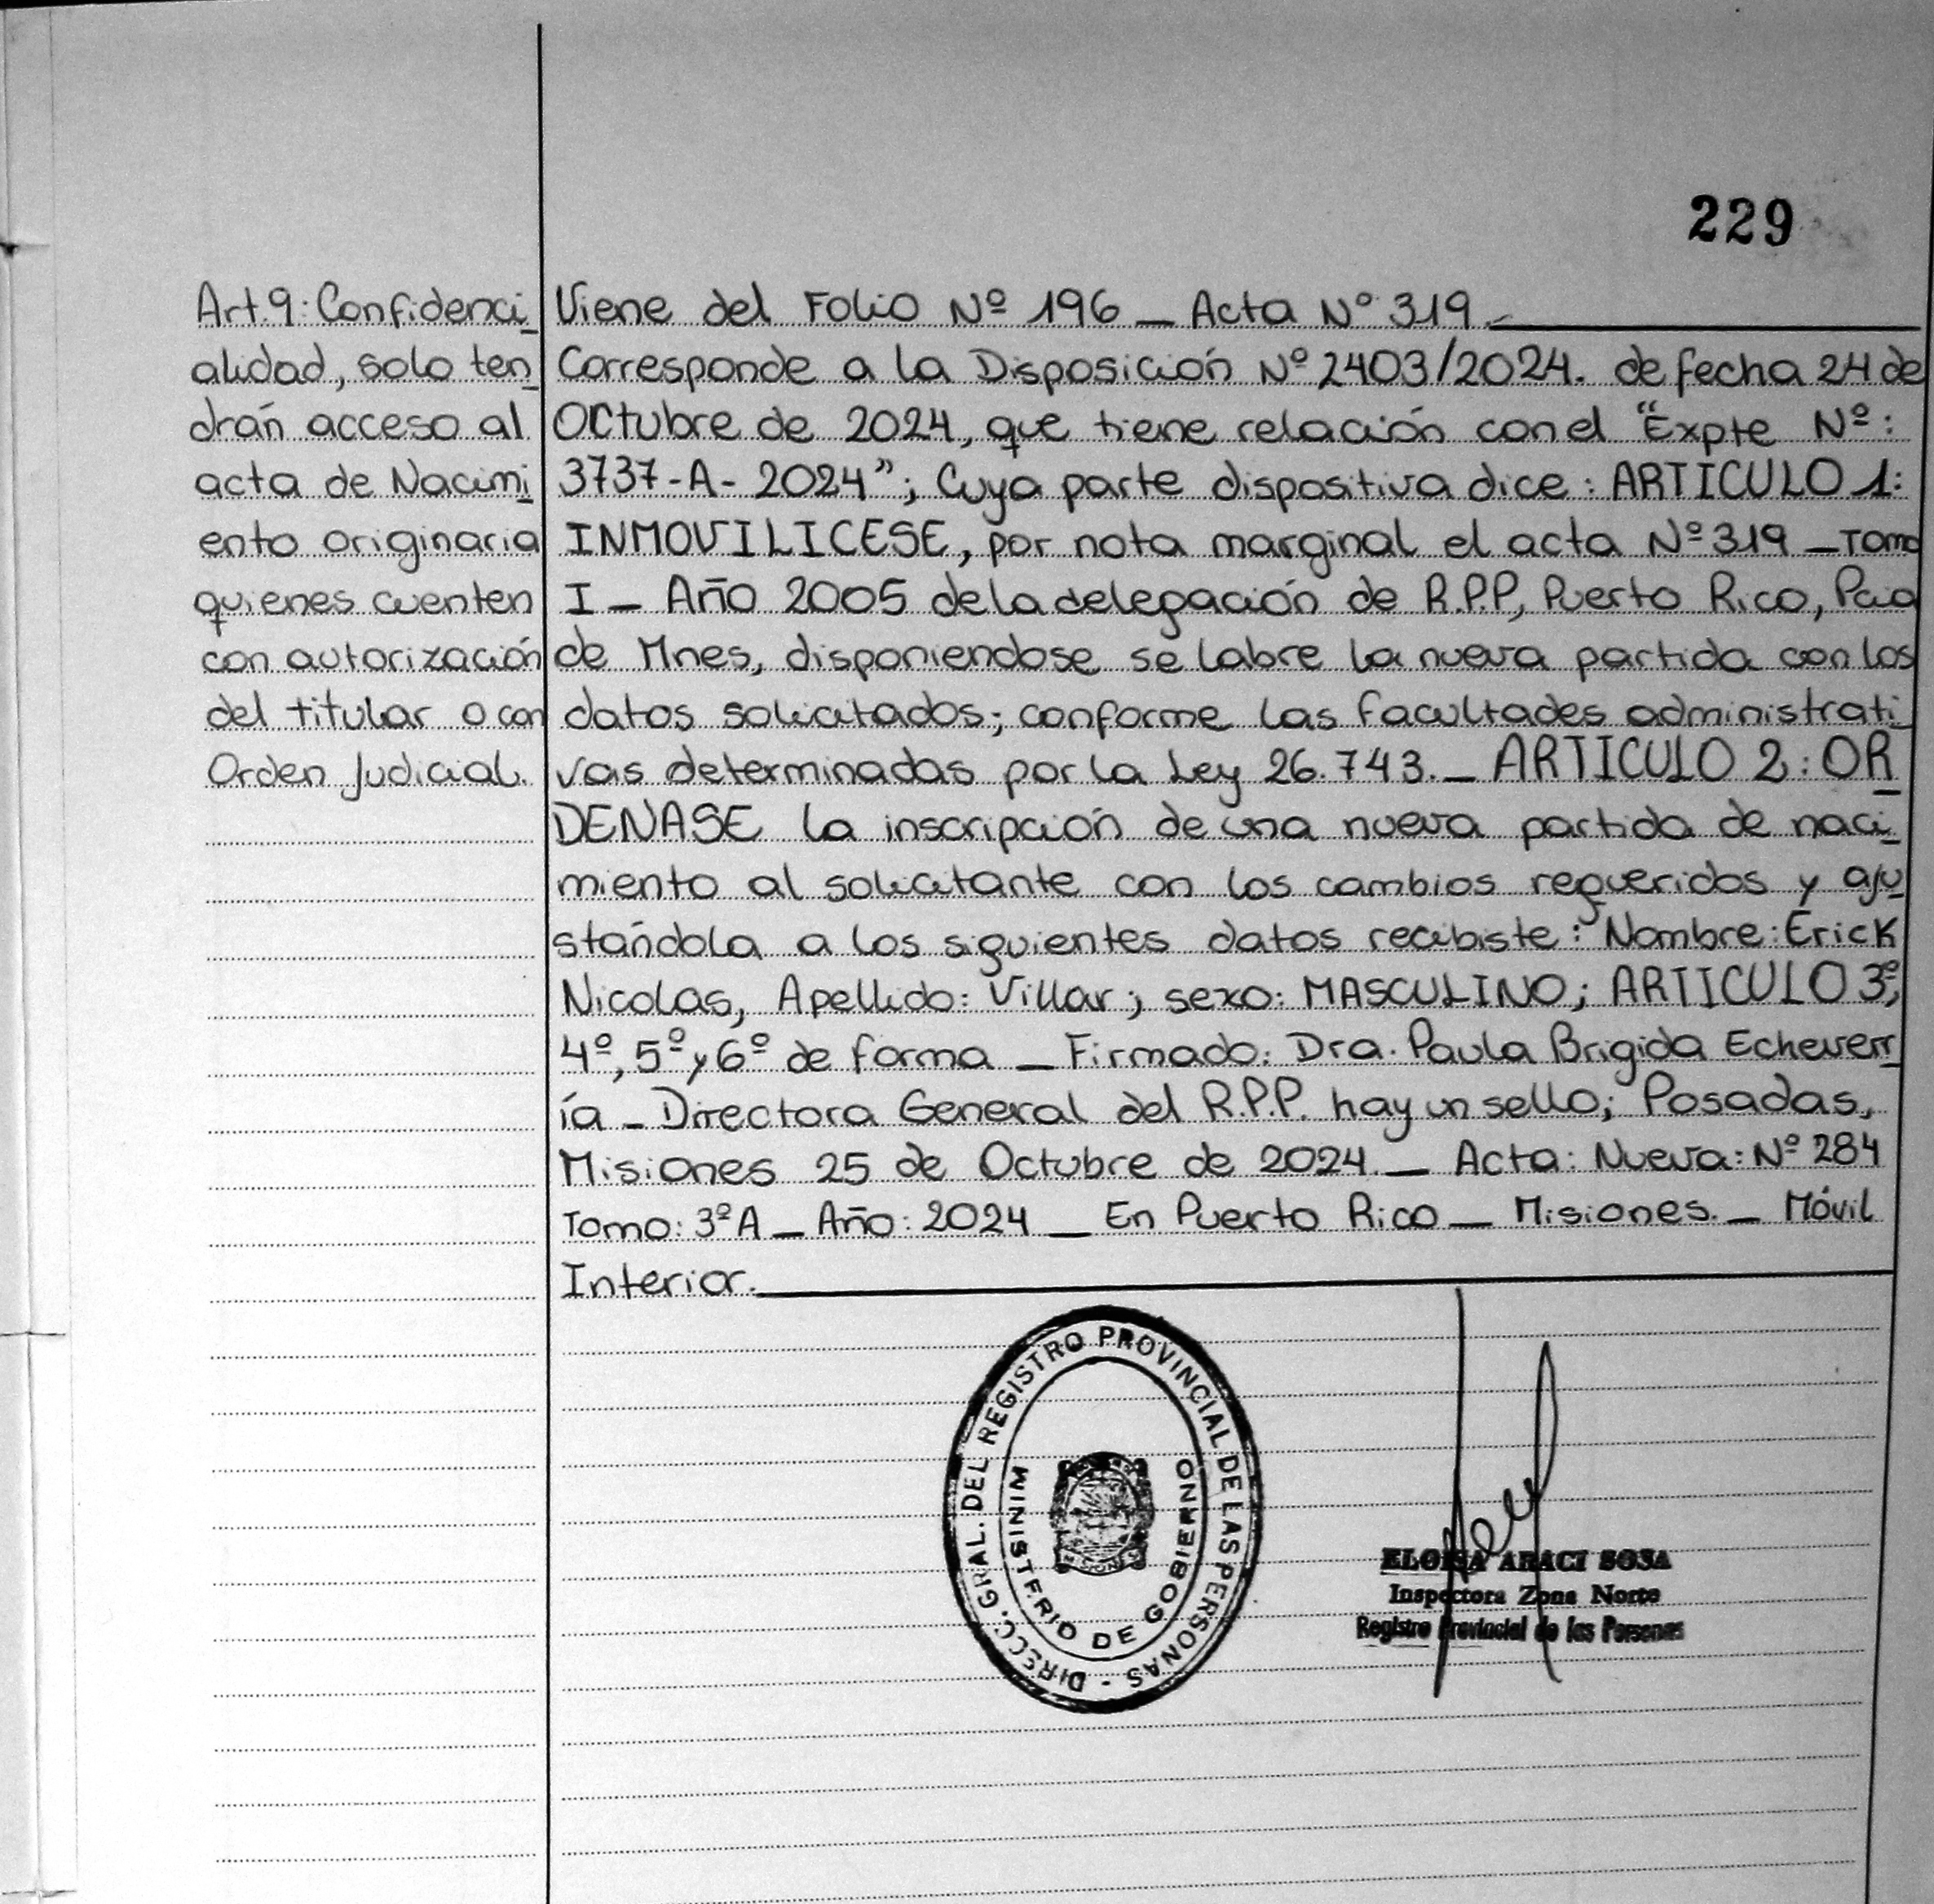 229
Art.9: Confidenci
alidad, solo ten
drán acceso al
acta de Nacimi
ento originaria
quienes cuenten
con autorización
del titular o con
Orden Judicial.
Viene del Folio Nº 196 _ Acta Nº 319._
Corresponde a la Disposición Nº 2403/2024. de fecha 24 de
Octubre de 2024, que tiene relación con el "Expte Nº:
3737-A-2024"; Cuya parte dispositiva dice: ARTICULO 1:
INMOVILICESE, por nota marginal el acta Nº 319 _ Tomo
I _ Año 2005 de la delegación de R.P.P, Puerto Rico, Pcia
de Mnes, disponiendose se labre la nueva partida con los
datos solicitados; conforme las facultades administrati
vas determinadas por la Ley 26.743. _ ARTICULO 2: OR
DENASE la inscripción de una nueva partida de naci
miento al solicitante con los cambios requeridos y aju
stándola a los siguientes datos recibiste: Nombre: Erick
Nicolas, Apellido: Villar; sexo: MASCULINO; ARTICULO 3º,
4º, 5º y 6º de forma _ Firmado: Dra. Paula Brigida Echeverr
ía _ Directora General del R.P.P. hay un sello; Posadas,
Misiones 25 de Octubre de 2024 _ Acta: Nueva: Nº 284
Tomo: 3º A _ Año: 2024 _ En Puerto Rico _ Misiones. _ Móvil
Interior.
DIRECC. GRAL. DEL REGISTRO PROVINCIAL DE LAS PERSONAS -
MINISTERIO DE GOBIERNO
ELOISA ARACI SOSA
Inspectora Zona Norte
Registro Provincial de las Personas